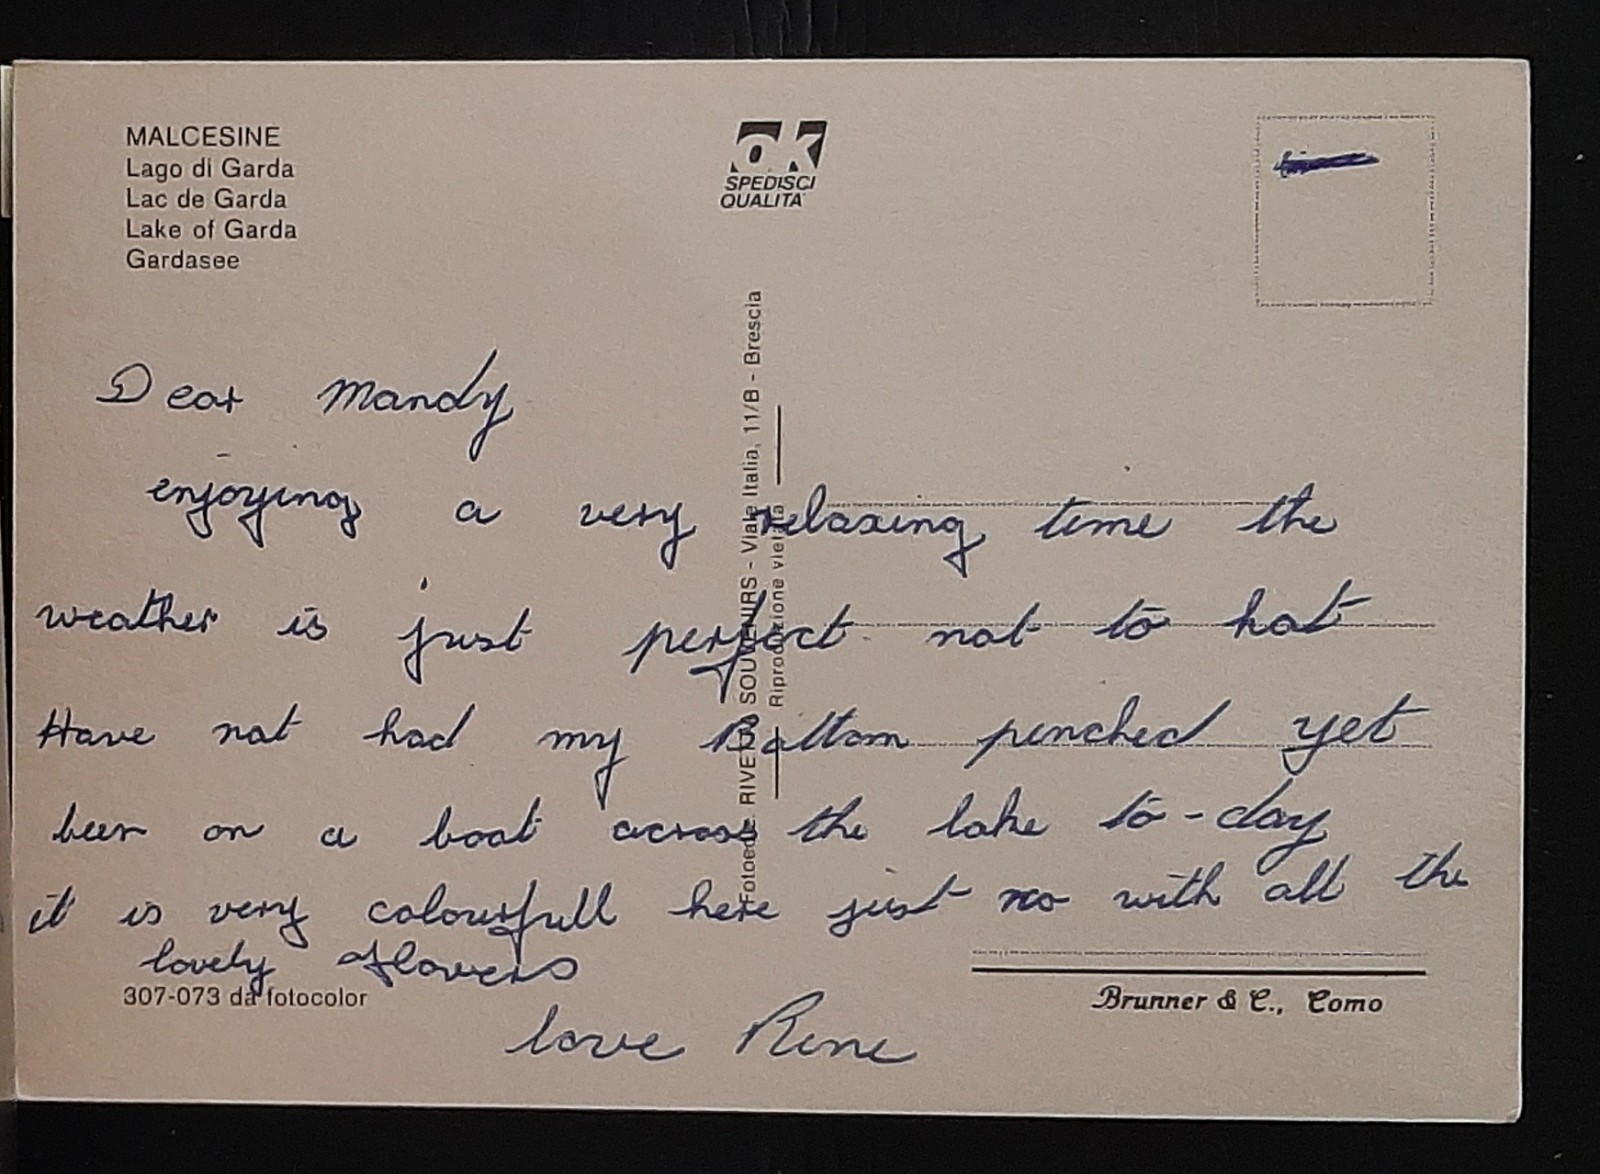 MALCESINE
Lago di Garda
Lac de Garda
Lake of Garda
Gardasee
ok
SPEDISCI
QUALITA'
Dear Mandy
enjoying a very relaxing time the
weather is just perfect not to hot
Have not had my Bottom penched yet
been on a boat across the lake to-day
it is very colourfull here just no with all the
lovely flowers
love Rene
Fotoed. RIVETTA SOUVENIRS - Viale Italia, 11/B - Brescia
Riproduzione vietata
307-073 da fotocolor
Brunner & C., Como